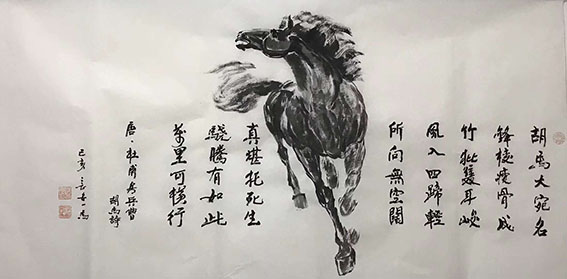 胡馬大宛名
鋒棱瘦骨成
竹批雙耳峻
風入四蹄輕
所向無空闊
真堪托死生
驍騰有如此
萬里可橫行
唐·杜甫房兵曹
胡馬詩
己亥 一馬